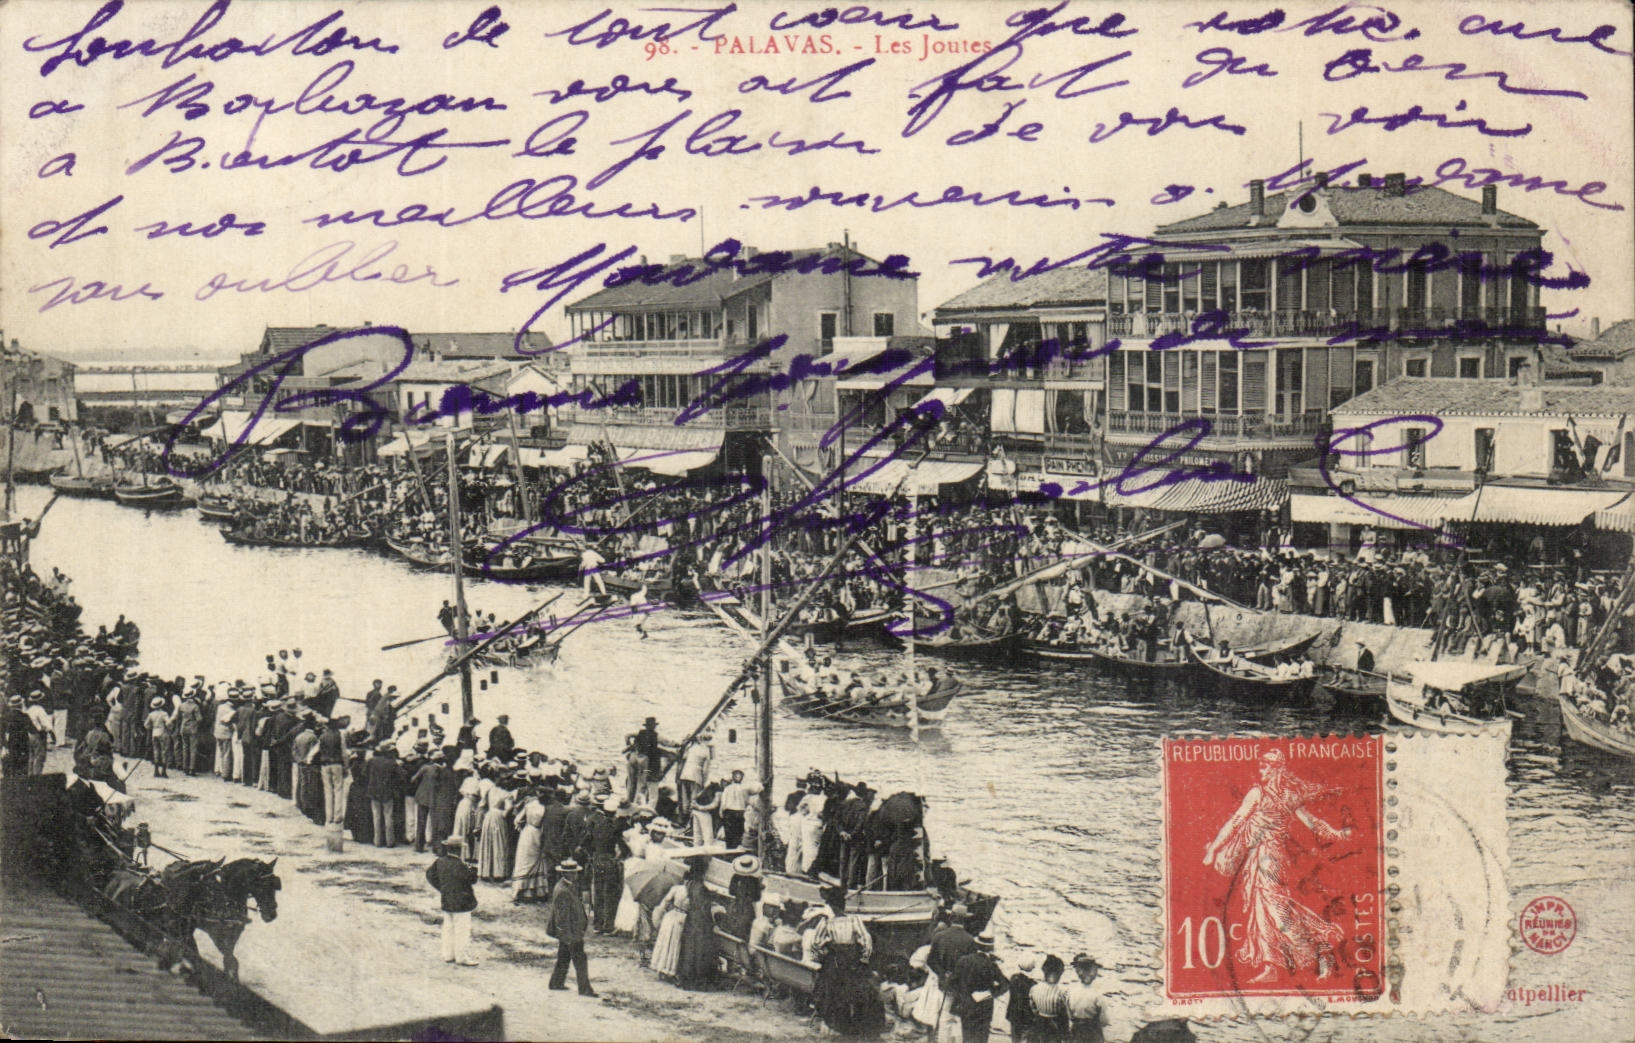 98. - PALAVAS. - Les Joutes
Souhaiton de tout coeur que votre cure
a Barbazan vous ait fait du bien
a Bientot le plaisir de vous voir
et nos meilleurs souvenirs a Madame
sans oublier Madame votre mère
Bonne de
PAIN PHENIX
PHILOMEN
REPUBLIQUE FRANÇAISE
10c
POSTES
O. ROTY
E. MOUCHON
IMPR. RÉUNIES DE NANCY
tpellier